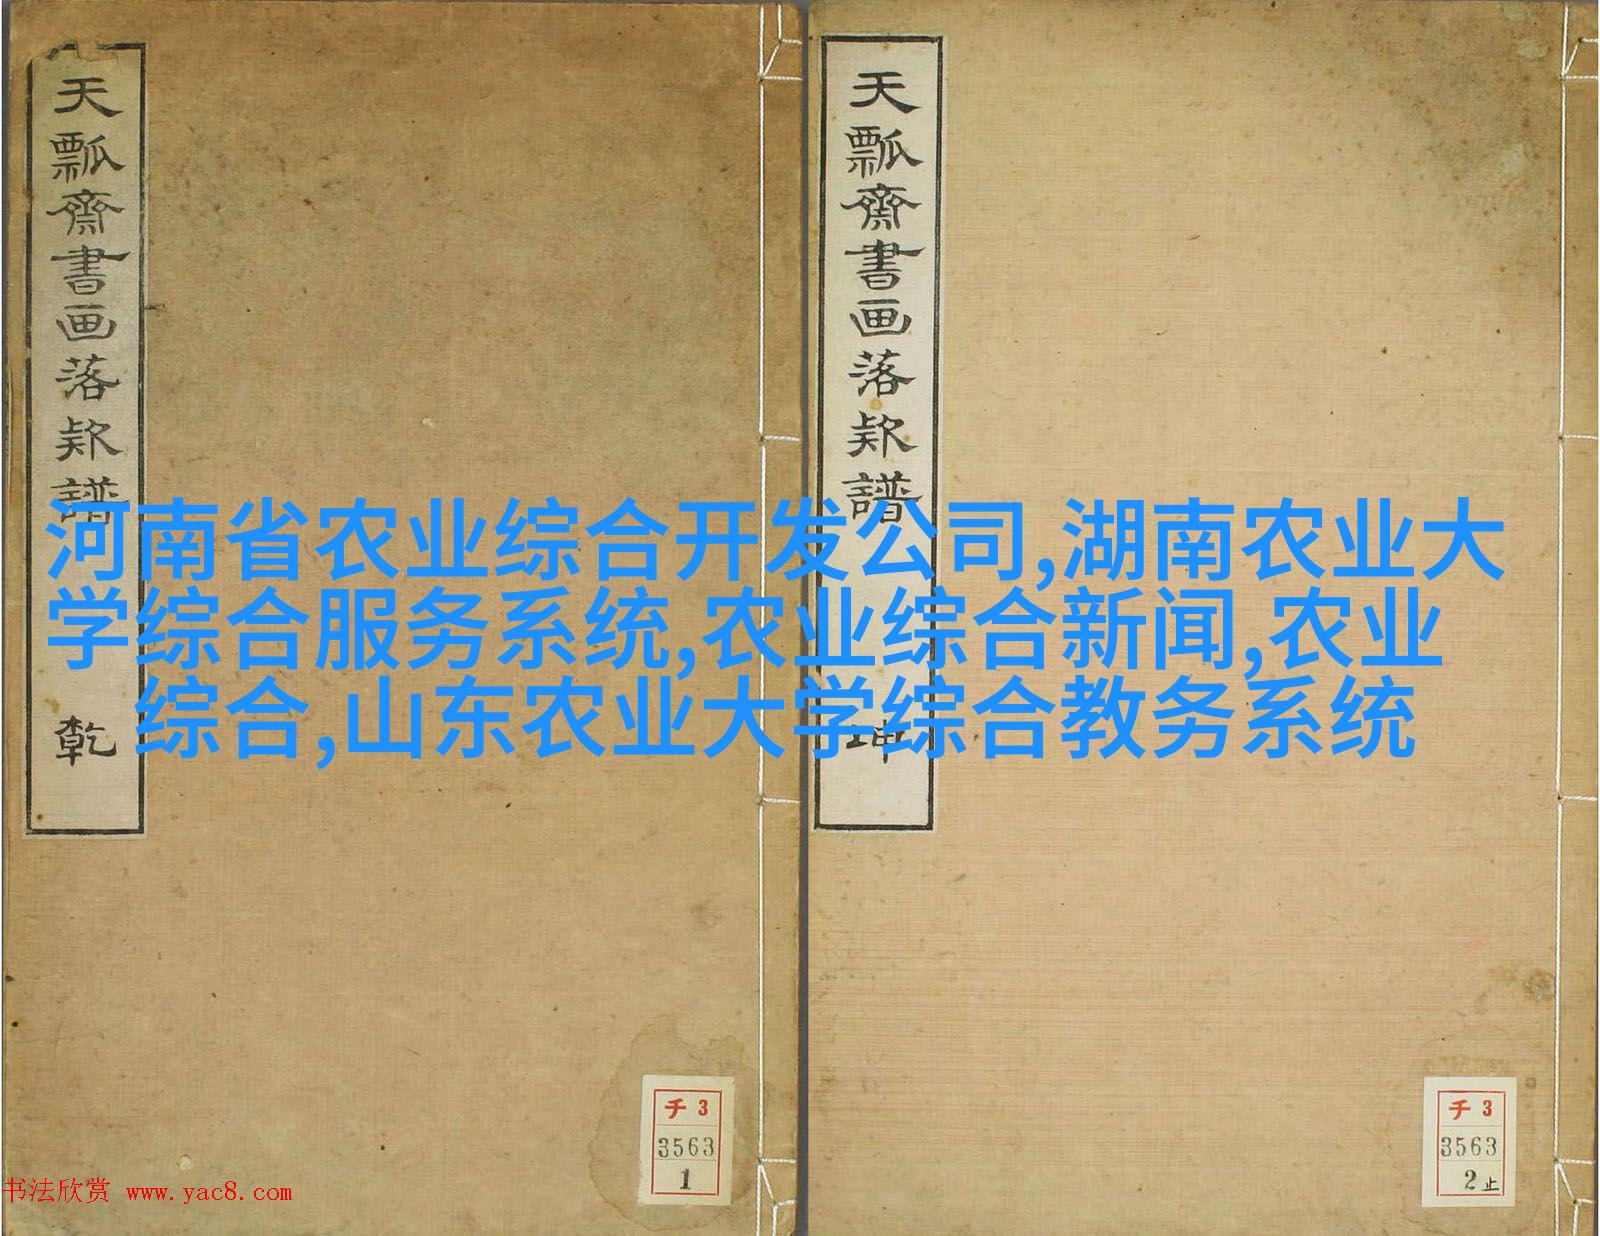 天瓢齋書画落欵譜
乾
天瓢齋書画落欵譜
坤
河南省农业综合开发公司,湖南农业大
学综合服务系统,农业综合新闻,农业
综合,山东农业大学综合教务系统
チ 3
3563
1
チ 3
3563
2止
书法欣赏 www.yac8.com